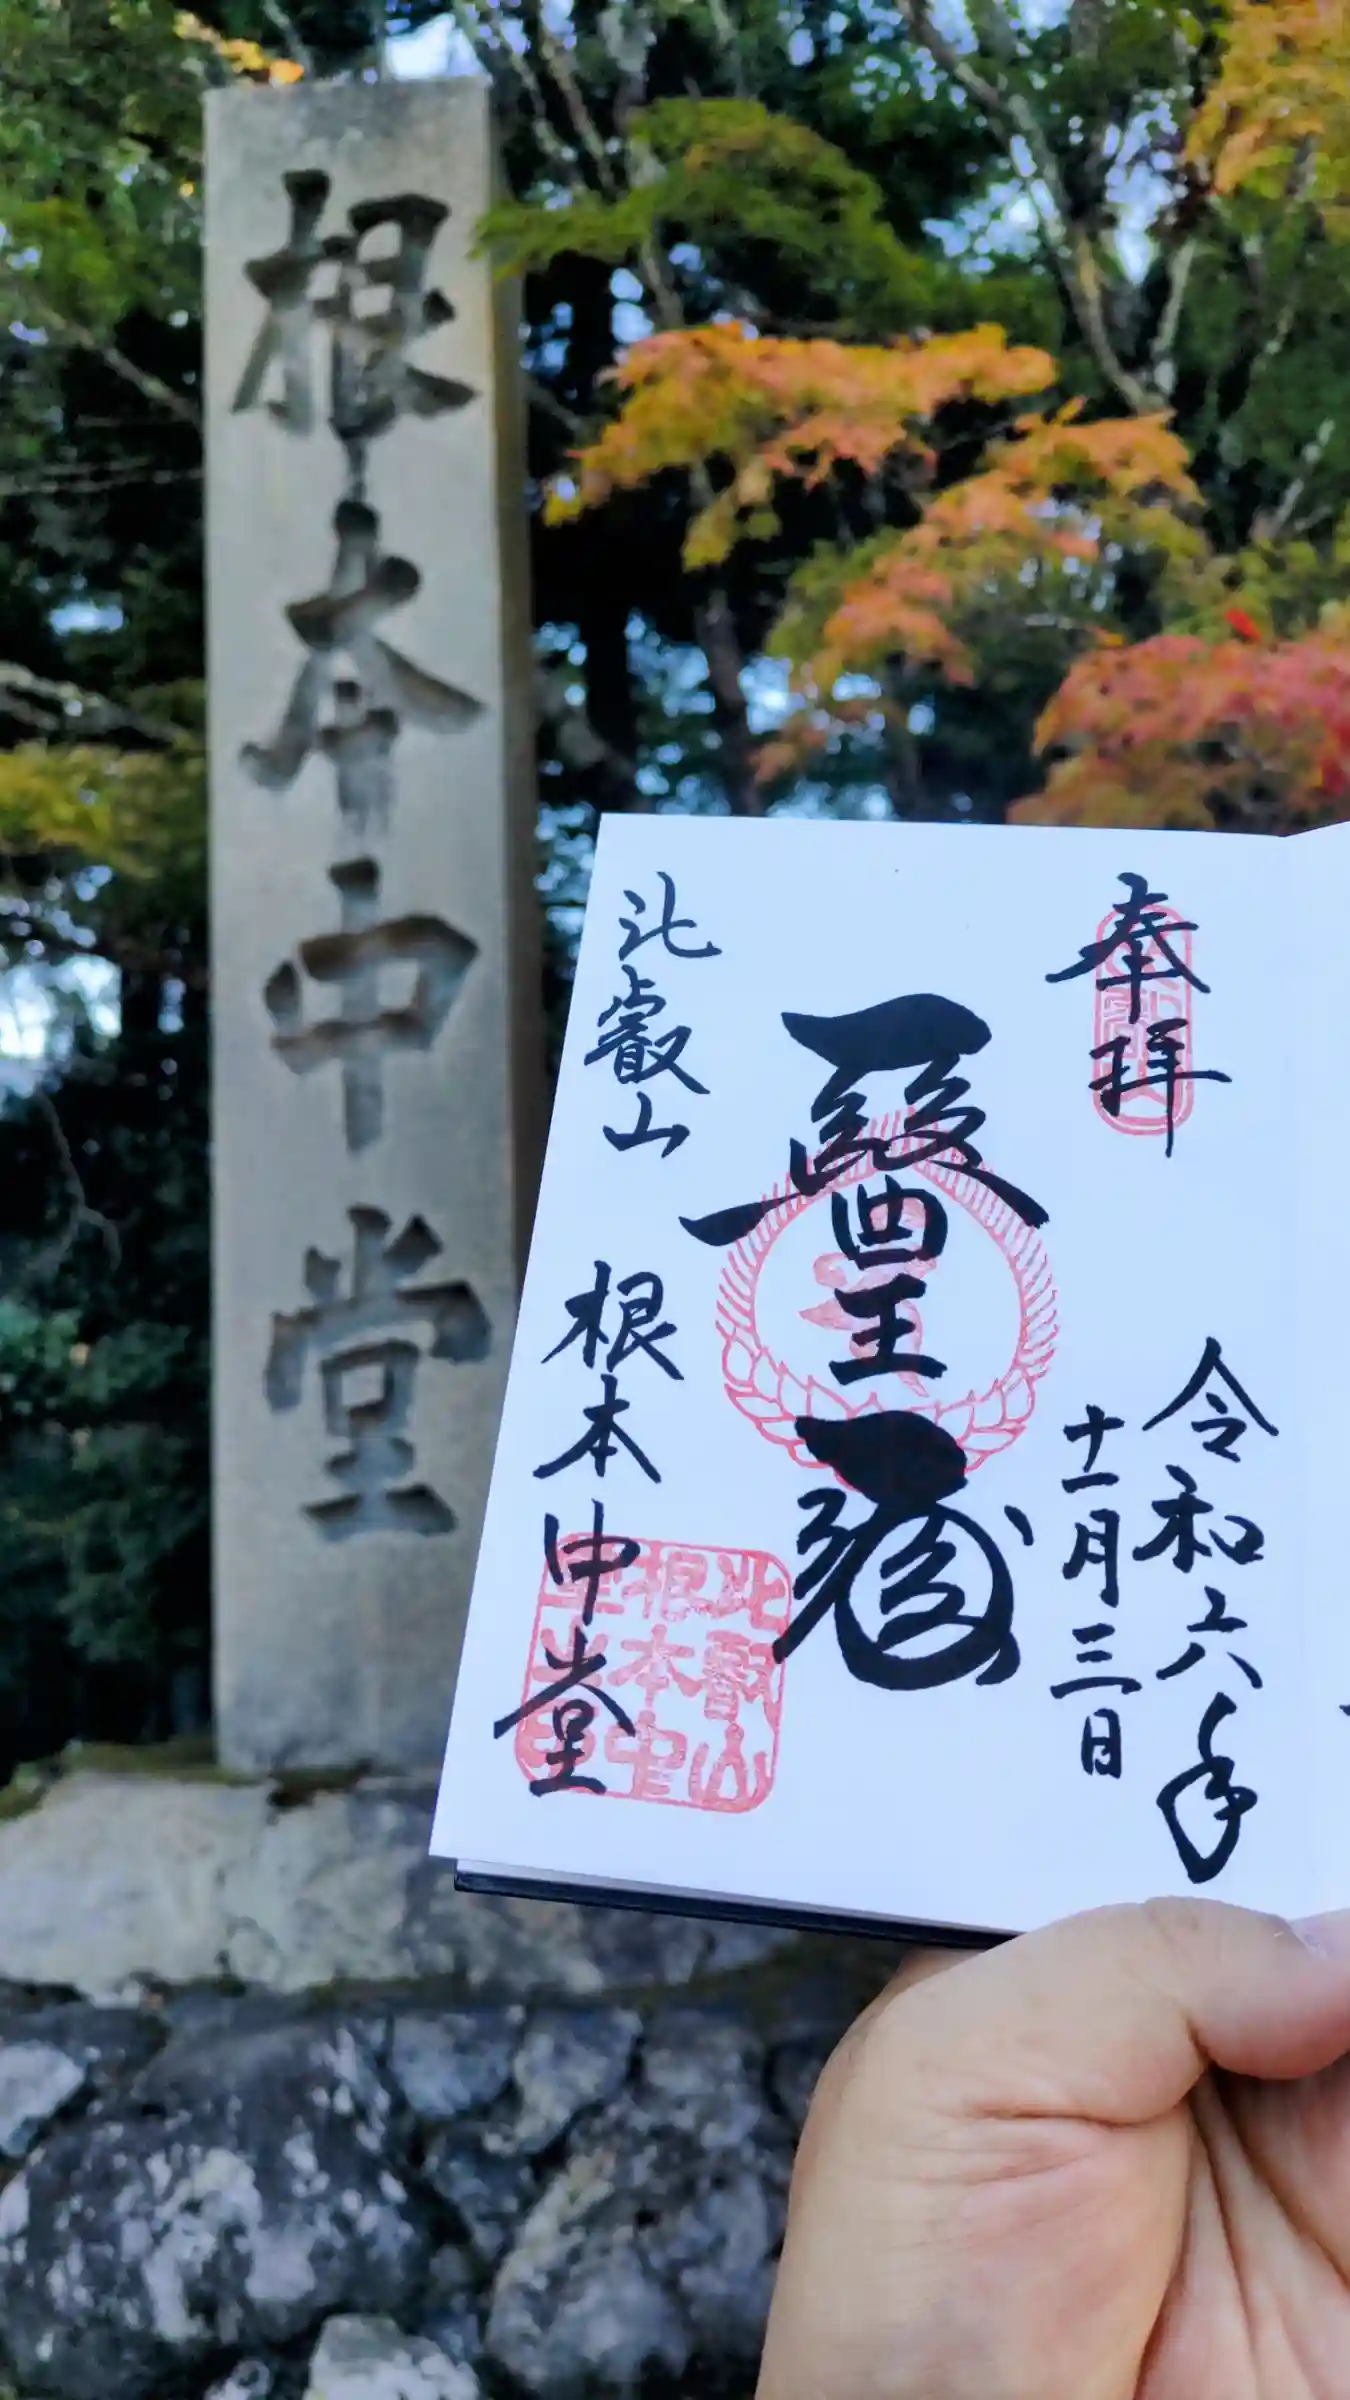 根本中堂
奉拝
令和六年
十一月三日
醫王殿
比叡山 根本中堂
比叡山
根本中
堂